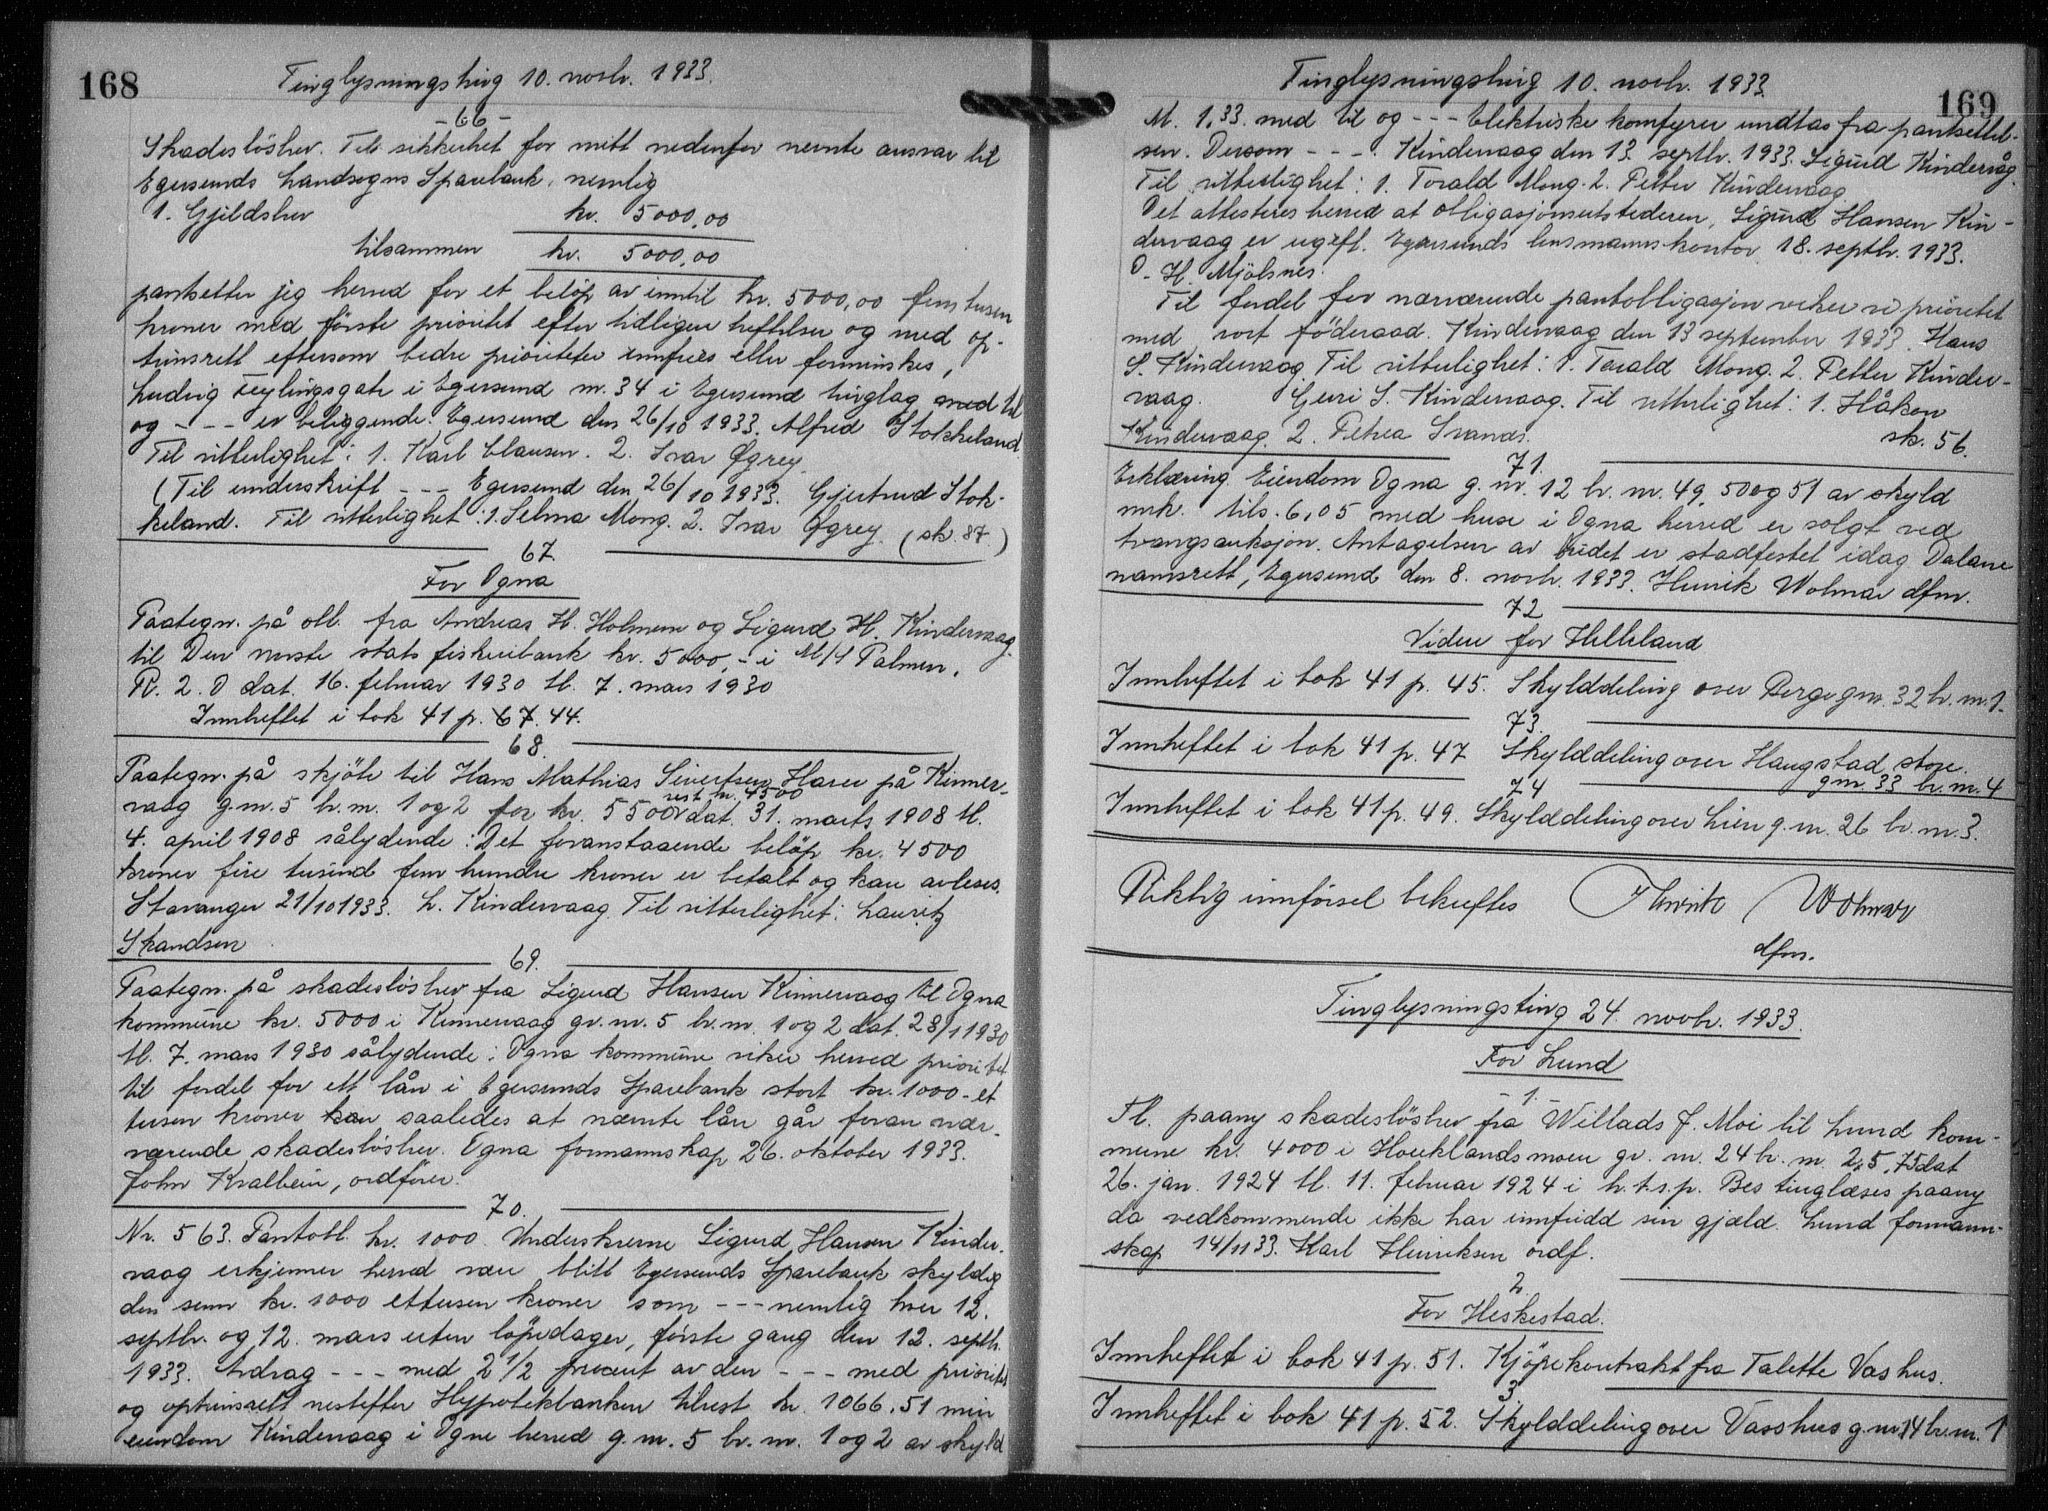 168
Tinglysningsting 10. novbr. 1933.
-66-
Skadesløsbrev. Til sikkerhet for mitt nedenfor nevnte ansvar til
Egersunds Landsogns Sparebank, nemlig
1. Gjeldsbrev kr. 5000,00
tilsammen kr. 5000,00
pantsetter jeg herved for et beløp av inntil kr. 5000,00 fem tusen
kroner med første prioritet efter tidligere heftelser og med op-
trinsrett eftersom bedre prioriteter innfries eller forminskes,
Ludvig Feylingsgate i Egersund m. 34 i Egersund tinglag med til
og - - - er beliggende. Egersund den 26/10 1933. Alfred Stokkeland
Til vitterlighet: 1. Karl Clausen. 2. Ivar Øgrey.
(Til underskrift - - - Egersund den 26/10 1933. Gjertrud Stok-
keland. Til vitterlighet: 1. Selma Mong. 2. Ivar Øgrey. (sk. 87)
67.
For Ogna
Paategn. på obl. fra Andreas H. Holmen og Sigurd H. Kindervaag
til Den norske stats fiskeribank kr. 5000,- i M/S Palmen.
R. 2. O dat. 16. februar 1930 tl. 7. mars 1930
Innheftet i bok 41 p. 67. 44.
68.
Paategn. på skjøte til Hans Mathias Sivertsen Harer på Kinner-
rest kr. 4500
vaag g.m. 5 br.m. 1 og 2 for kr. 5500 dat. 31. marts 1908 tl.
4. april 1908 sålydende: Det foranstaaende beløp kr. 4500
kroner fire tusind fem hundre kroner er betalt og kan avleses.
Stavanger 21/10 1933. L. Kindervaag. Til vitterlighet: Lauritz
Skandsen
69.
Paategn. på skadesløsbrev fra Sigurd Hansen Kinnervaag til Ogna
kommune kr. 5000 i Kinnervaag gr.m. 5 br.m. 1 og 2 dat. 28/1 1930
tl. 7. mars 1930 sålydende: Ogna kommune viker herved prioritet
til fordel for ett lån i Egersunds Sparebank stort kr. 1000 - et
tusen kroner kan saaledes at nævnte lån går foran nær-
værende skadesløsbrev. Ogna formannskap 26. oktober 1933.
John Kvalbein, ordfører.
70.
Nr. 563. Pantobl. kr. 1000. Underskrevne Sigurd Hansen Kinder-
vaag erkjenner herved være blitt Egersunds Sparebank skyldig
den sum kr. 1000 ettusen kroner som - - - nemlig hver 12.
septbr. og 12. mars uten løpedager, første gang den 12. septbr.
1933. Avdrag - - - med 2 1/2 procent av den - - - med prioritet
og optrinsrett nestefter Hypotekbanken tilrest kr. 1066,51 min
eiendom Kindervaag i Ogne herred g.m. 5 br.m. 1 og 2 av skyld
169
Tinglysningsting 10. novbr. 1933.
M. 1,33. med til og - - - Elektriske komfyrer undtas fra pantsettel-
sen. Dersom - - - . Kindervaag den 13. septbr. 1933. Sigurd Kindervåg.
Til vitterlighet: 1. Torald Mong. 2. Petter Kindervaag.
Det attesteres herved at obligasjonsutstederen, Sigurd Hansen Kin-
dervaag er ugift. Egersunds lensmannskontor 18. septbr. 1933.
O. H. Mjølsnes.
Til fordel for nærværende pantobligasjon viker vi prioritet
med vort føderaad. Kindervaag den 13 september 1933. Hans
S. Kindervaag. Til vitterlighet: 1. Torald Mong. 2. Petter Kinder-
vaag. Guri S. Kindervaag. Til vitterlighet: 1. Håkon
Kindervaag. 2. Petrea Svands. sk. 56.
71.
Erklæring. Eiendom Ogna g.m. 12 br.m. 49, 50 og 51 av skyld
mrk. tils. 6,05 med huse i Ogna herred er solgt ved
tvangsauksjon. Antagelsen av budet er stadfestet idag. Dalane
namsrett, Egersund den 8. novbr. 1933. Henrik Wolmar dfm.
72
Videre for Helleland
Innheftet i bok 41 p. 45. Skylddeling over Berge gm. 32 br.m. 1.
73.
Innheftet i bok 41 p. 47 Skylddeling over Haugstad store.
gm. 33 br.m. 4
74
Innheftet i bok 41 p. 49. Skylddeling over Lien g.m. 26 br.m. 3.
Riktig innførsel bekreftes Henrik Wolmar
dfm.
Tinglysningsting 24. novbr. 1933.
For Lund
- 1. -
Tl. paany skadesløsbrev fra Willads J. Moi til Lund kom-
mune kr. 4000 i Houklandsmoen gr. m. 24 br. m. 2, 5, 75 dat
26. jan. 1924 tl. 11. februar 1924 i h.t.s.p. Bes tinglæses paany
da vedkommende ikke har innfridd sin gjæld. Lund formann-
skap 14/11 33. Karl Henriksen ordf.
2.
For Heskestad.
Innheftet i bok 41 p. 51. Kjøpekontrakt fra Talette Vashus.
3.
Innheftet i bok 41 p. 52. Skylddeling over Vasshus g.m. 14 br.m. 1